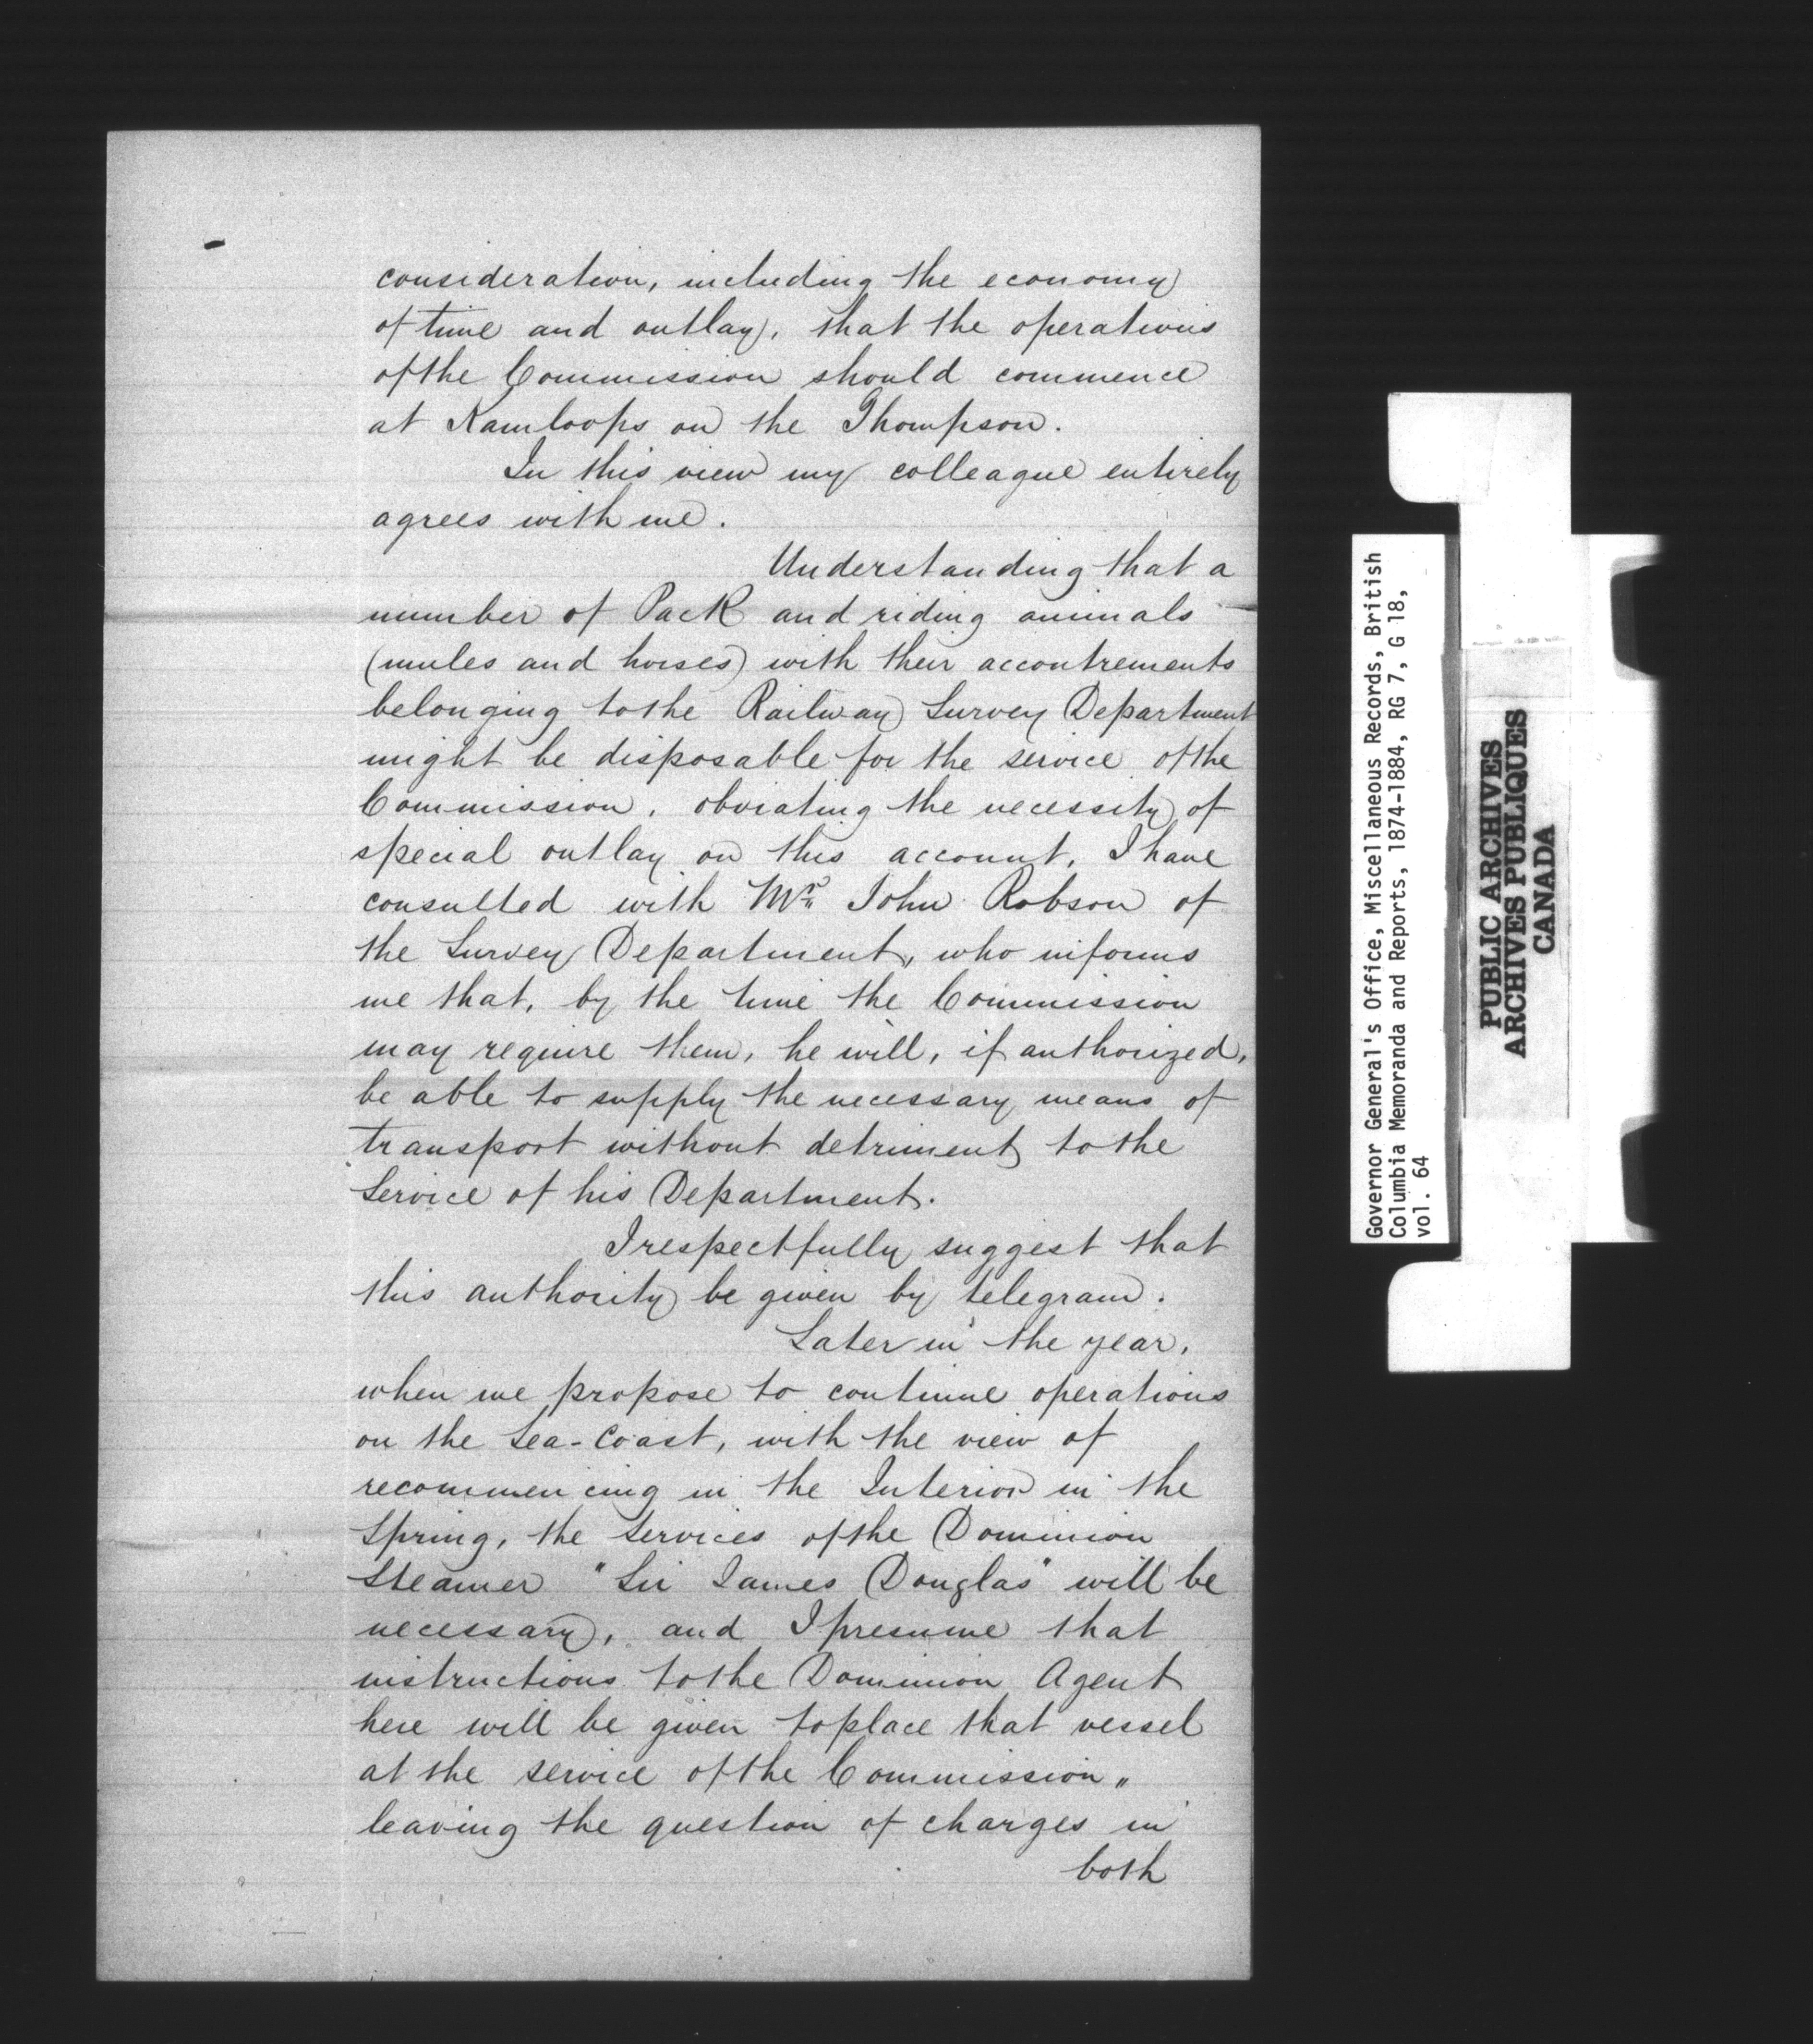 consideration, including the economy
of time and outlay, that the operations
of the Commission should commence
at Kamloops on the Thompson.
In this view my colleague entirely
agrees with me.
Understanding that a
number of Pack and riding animals
(mules and horses) with their accoutrements
belonging to the Railway Survey Department
might be disposable for the service of the
Commission, obviating the necessity of
special outlay on this account, I have
consulted with Mr. John Robson of
the Survey Department, who informs
me that, by the time the Commission
may require them, he will, if authorized,
be able to supply the necessary means of
transport without detriment to the
Service of his Department.
I respectfully suggest that
this authority be given by telegram.
Later in the year,
when we propose to continue operations
on the Sea-Coast, with the view of
recommencing in the Interior in the
Spring, the Services of the Dominion
Steamer "Sir James Douglas" will be
necessary, and I presume that
instructions to the Dominion Agent
here will be given to place that vessel
at the service of the Commission,,
leaving the question of charges in
both
Governor General's Office, Miscellaneous Records, British
Columbia Memoranda and Reports, 1874-1884, RG 7, G 18,
vol. 64
PUBLIC ARCHIVES
ARCHIVES PUBLIQUES
CANADA